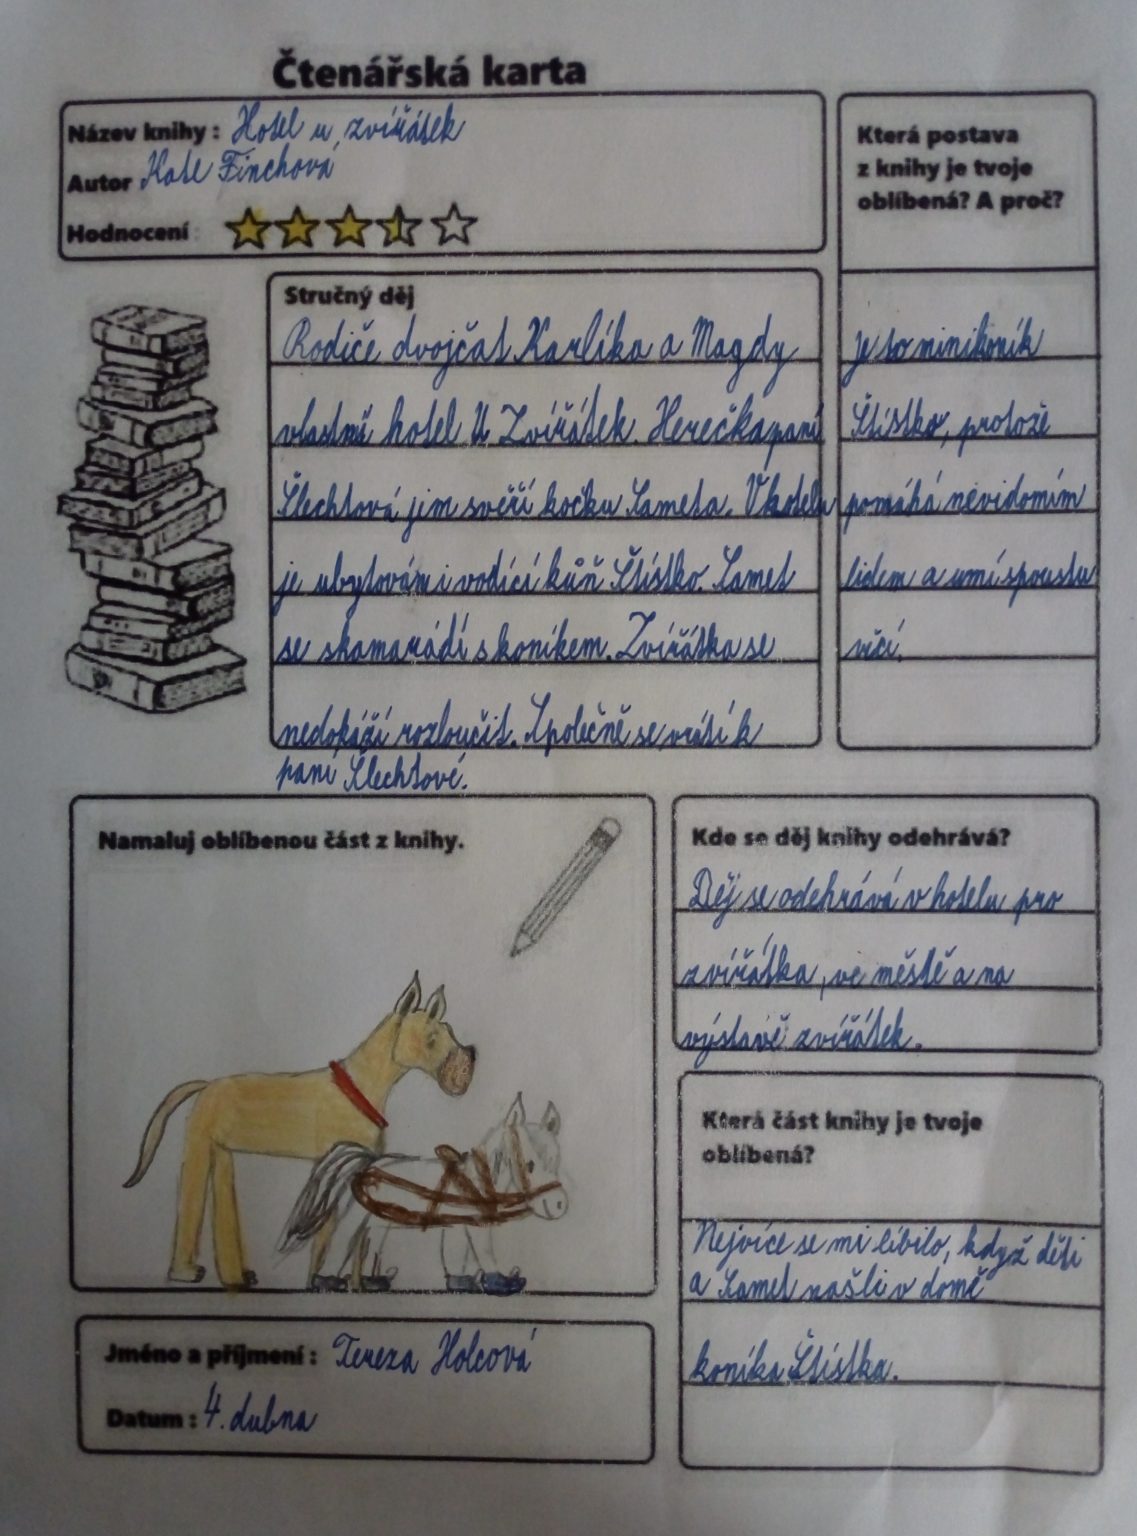 Čtenářská karta
Název knihy : Hotel u zvířátek
Autor Kate Finchová
Hodnocení :
Která postava
z knihy je tvoje
oblíbená? A proč?
je to minikoník
Štístko, protože
pomáhá nevidomím
lidem a umí spoustu
věcí.
Stručný děj
Rodiče dvojčat Karlíka a Magdy
vlastní hotel U Zvířátek. Herečka paní
Šlechtová jim svěří kočku Sameta. V hotelu
je ubytován i vodící kůň Štístko. Samet
se skamarádí s koníkem. Zvířátka se
nedokáží rozloučit. Společně se vrátí k
paní Šlechtové.
Namaluj oblíbenou část z knihy.
Kde se děj knihy odehrává?
Děj se odehrává v hotelu pro
zvířátka, ve městě a na
výstavě zvířátek.
Která část knihy je tvoje
oblíbená?
Nejvíce se mi líbilo, když děti
a Samet našli v domě
koníka Štístka.
Jméno a příjmení : Tereza Holcová
Datum : 4. dubna